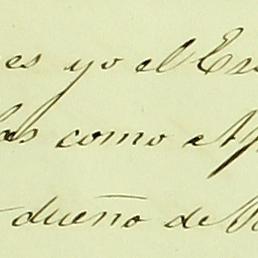 es yo el Es
las como Ap
dueño de